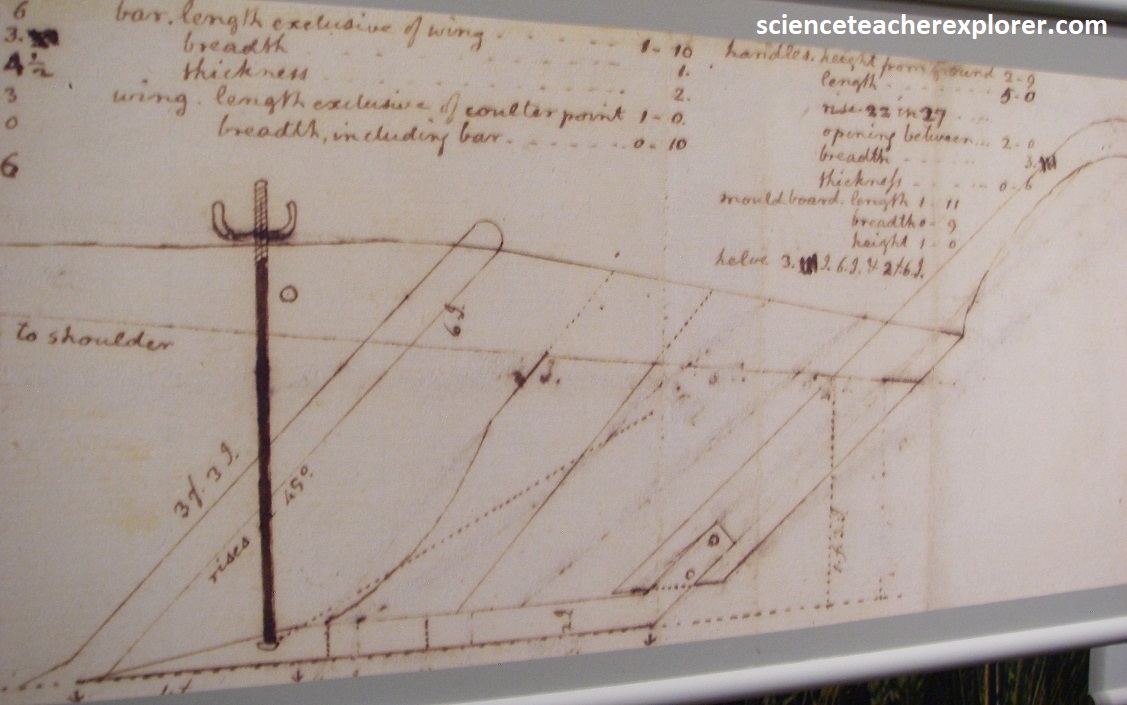 scienceteacherexplorer.com
6
3.
4 1/2
3
0
6
bar. length exclusive of wing 1 - 10
breadth 1.
thickness 2.
wing. length exclusive of coulter point 1 - 0.
breadth, including bar 0 - 10
handles. height from ground 2 - 9
length 5 - 0
rise 22 in 27
opening between 2 - 0
breadth 3.
thickness 0 - 6
mouldboard. length 1 - 11
breadth 0 - 9
height 1 - 0
helve 3. I. 6. I. & 2f. 6 I.
to shoulder
6 I.
3f. 3 I.
45°
rises